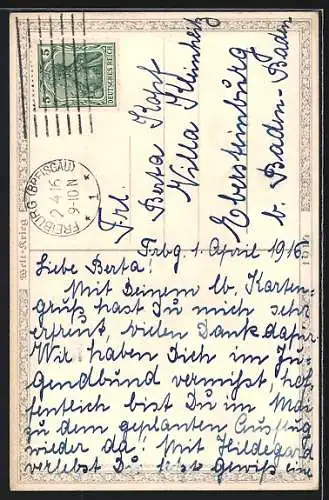 5 5
DEUTSCHES REICH
FREIBURG (BREISGAU)
2.4.16
9-10 N
* 1 *
Frl.
Berta Kopf
Villa
Ebersteinburg
b. Baden-Baden
Welt-Krieg
Frbg. 1. April 1916
Liebe Berta!
Mit Deinem lb. Karten-
gruß hast Du mich sehr
erfreut, vielen Dank dafür.
Wir haben Dich im Ju-
gendbund vermißt, hof-
fentlich bist Du im Mai
zu dem geplanten Ausflug
wieder da! Mit Hildegard
verlebst Du jetzt gewiß eine